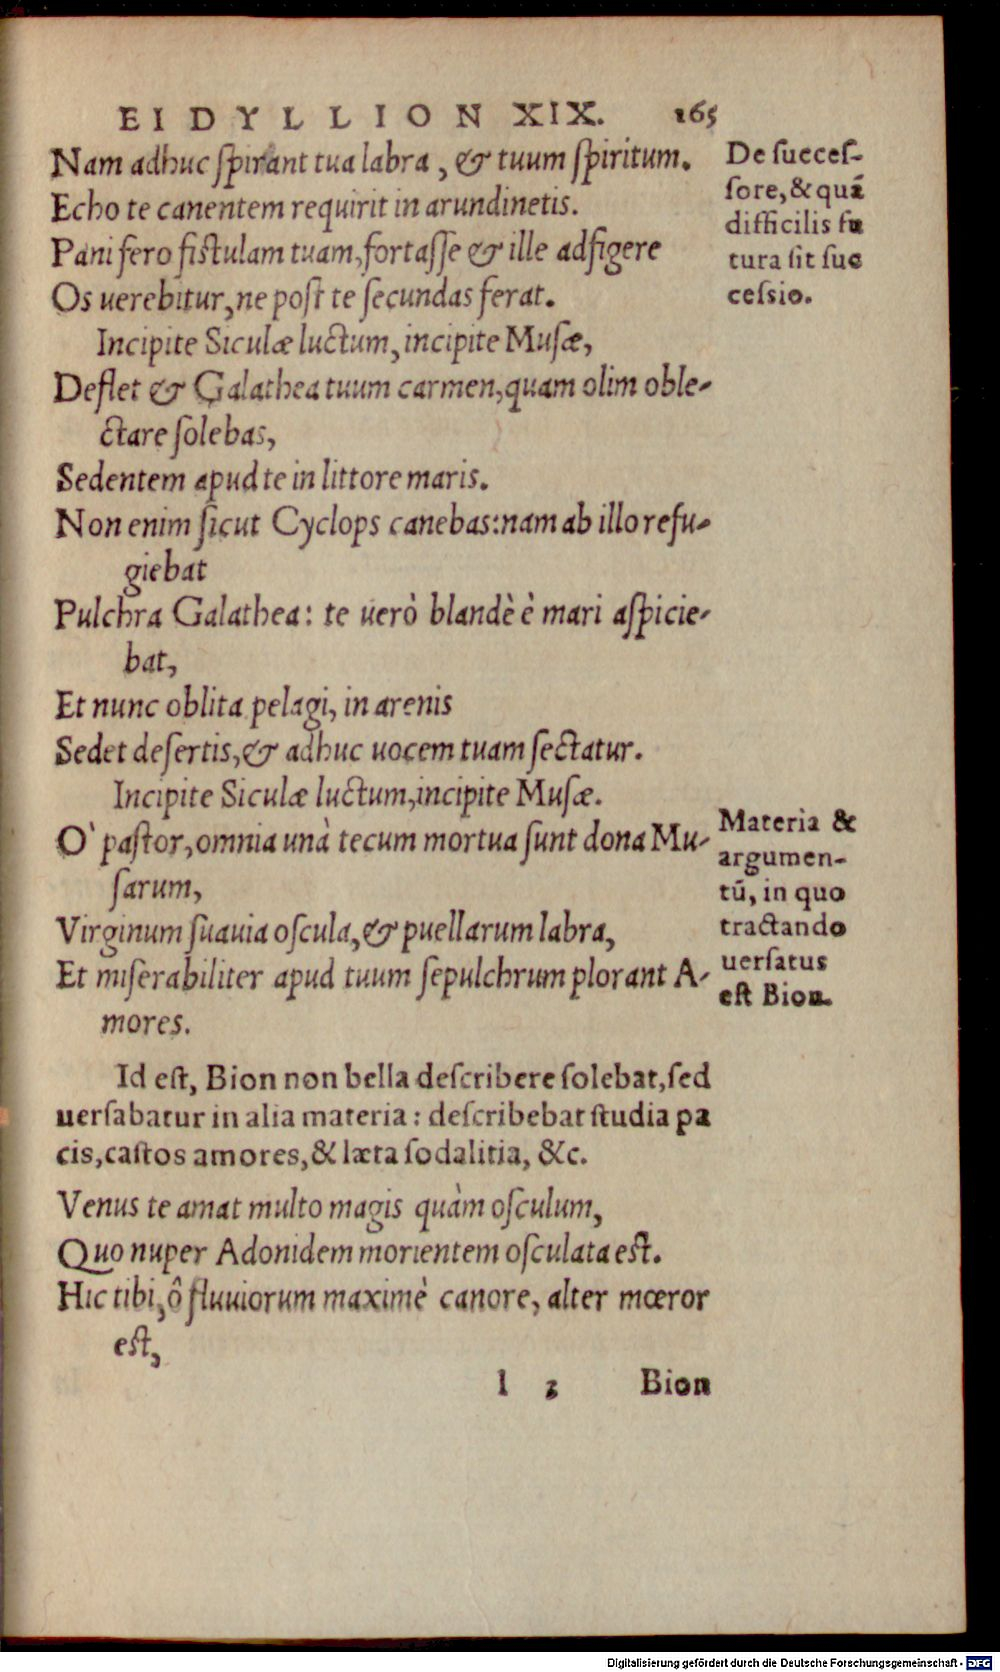 EIDYLLION XIX. 165
Nam adhuc spirant tua labra, & tuum spiritum.
Echo te canentem requirit in arundinetis.
Pani fero fistulam tuam, fortasse & ille adfigere
Os uerebitur, ne post te secundas ferat.
Incipite Siculæ luctum, incipite Musæ,
Deflet & Galathea tuum carmen, quam olim oble-
ctare solebas,
Sedentem apud te in littore maris.
Non enim sicut Cyclops canebas: nam ab illo refu-
giebat
Pulchra Galathea: te uerò blandè è mari aspicie-
bat,
Et nunc oblita pelagi, in arenis
Sedet desertis, & adhuc uocem tuam sectatur.
Incipite Siculæ luctum, incipite Musæ.
O` pastor, omnia unà tecum mortua sunt dona Mu-
sarum,
Virginum suauia oscula, & puellarum labra,
Et miserabiliter apud tuum sepulchrum plorant A-
mores.
Id est, Bion non bella describere solebat, sed
uersabatur in alia materia: describebat studia pa
cis, castos amores, & læta sodalitia, &c.
Venus te amat multo magis quàm osculum,
Quo nuper Adonidem morientem osculata est.
Hic tibi, ô fluuiorum maximè canore, alter mœror
est,
l 3 Bion
De succes-
sore, & quã
difficilis fu
tura sit suc
cessio.
Materia &
argumen-
tũ, in quo
tractando
uersatus
est Bion.
Digitalisierung gefördert durch die Deutsche Forschungsgemeinschaft - DFG